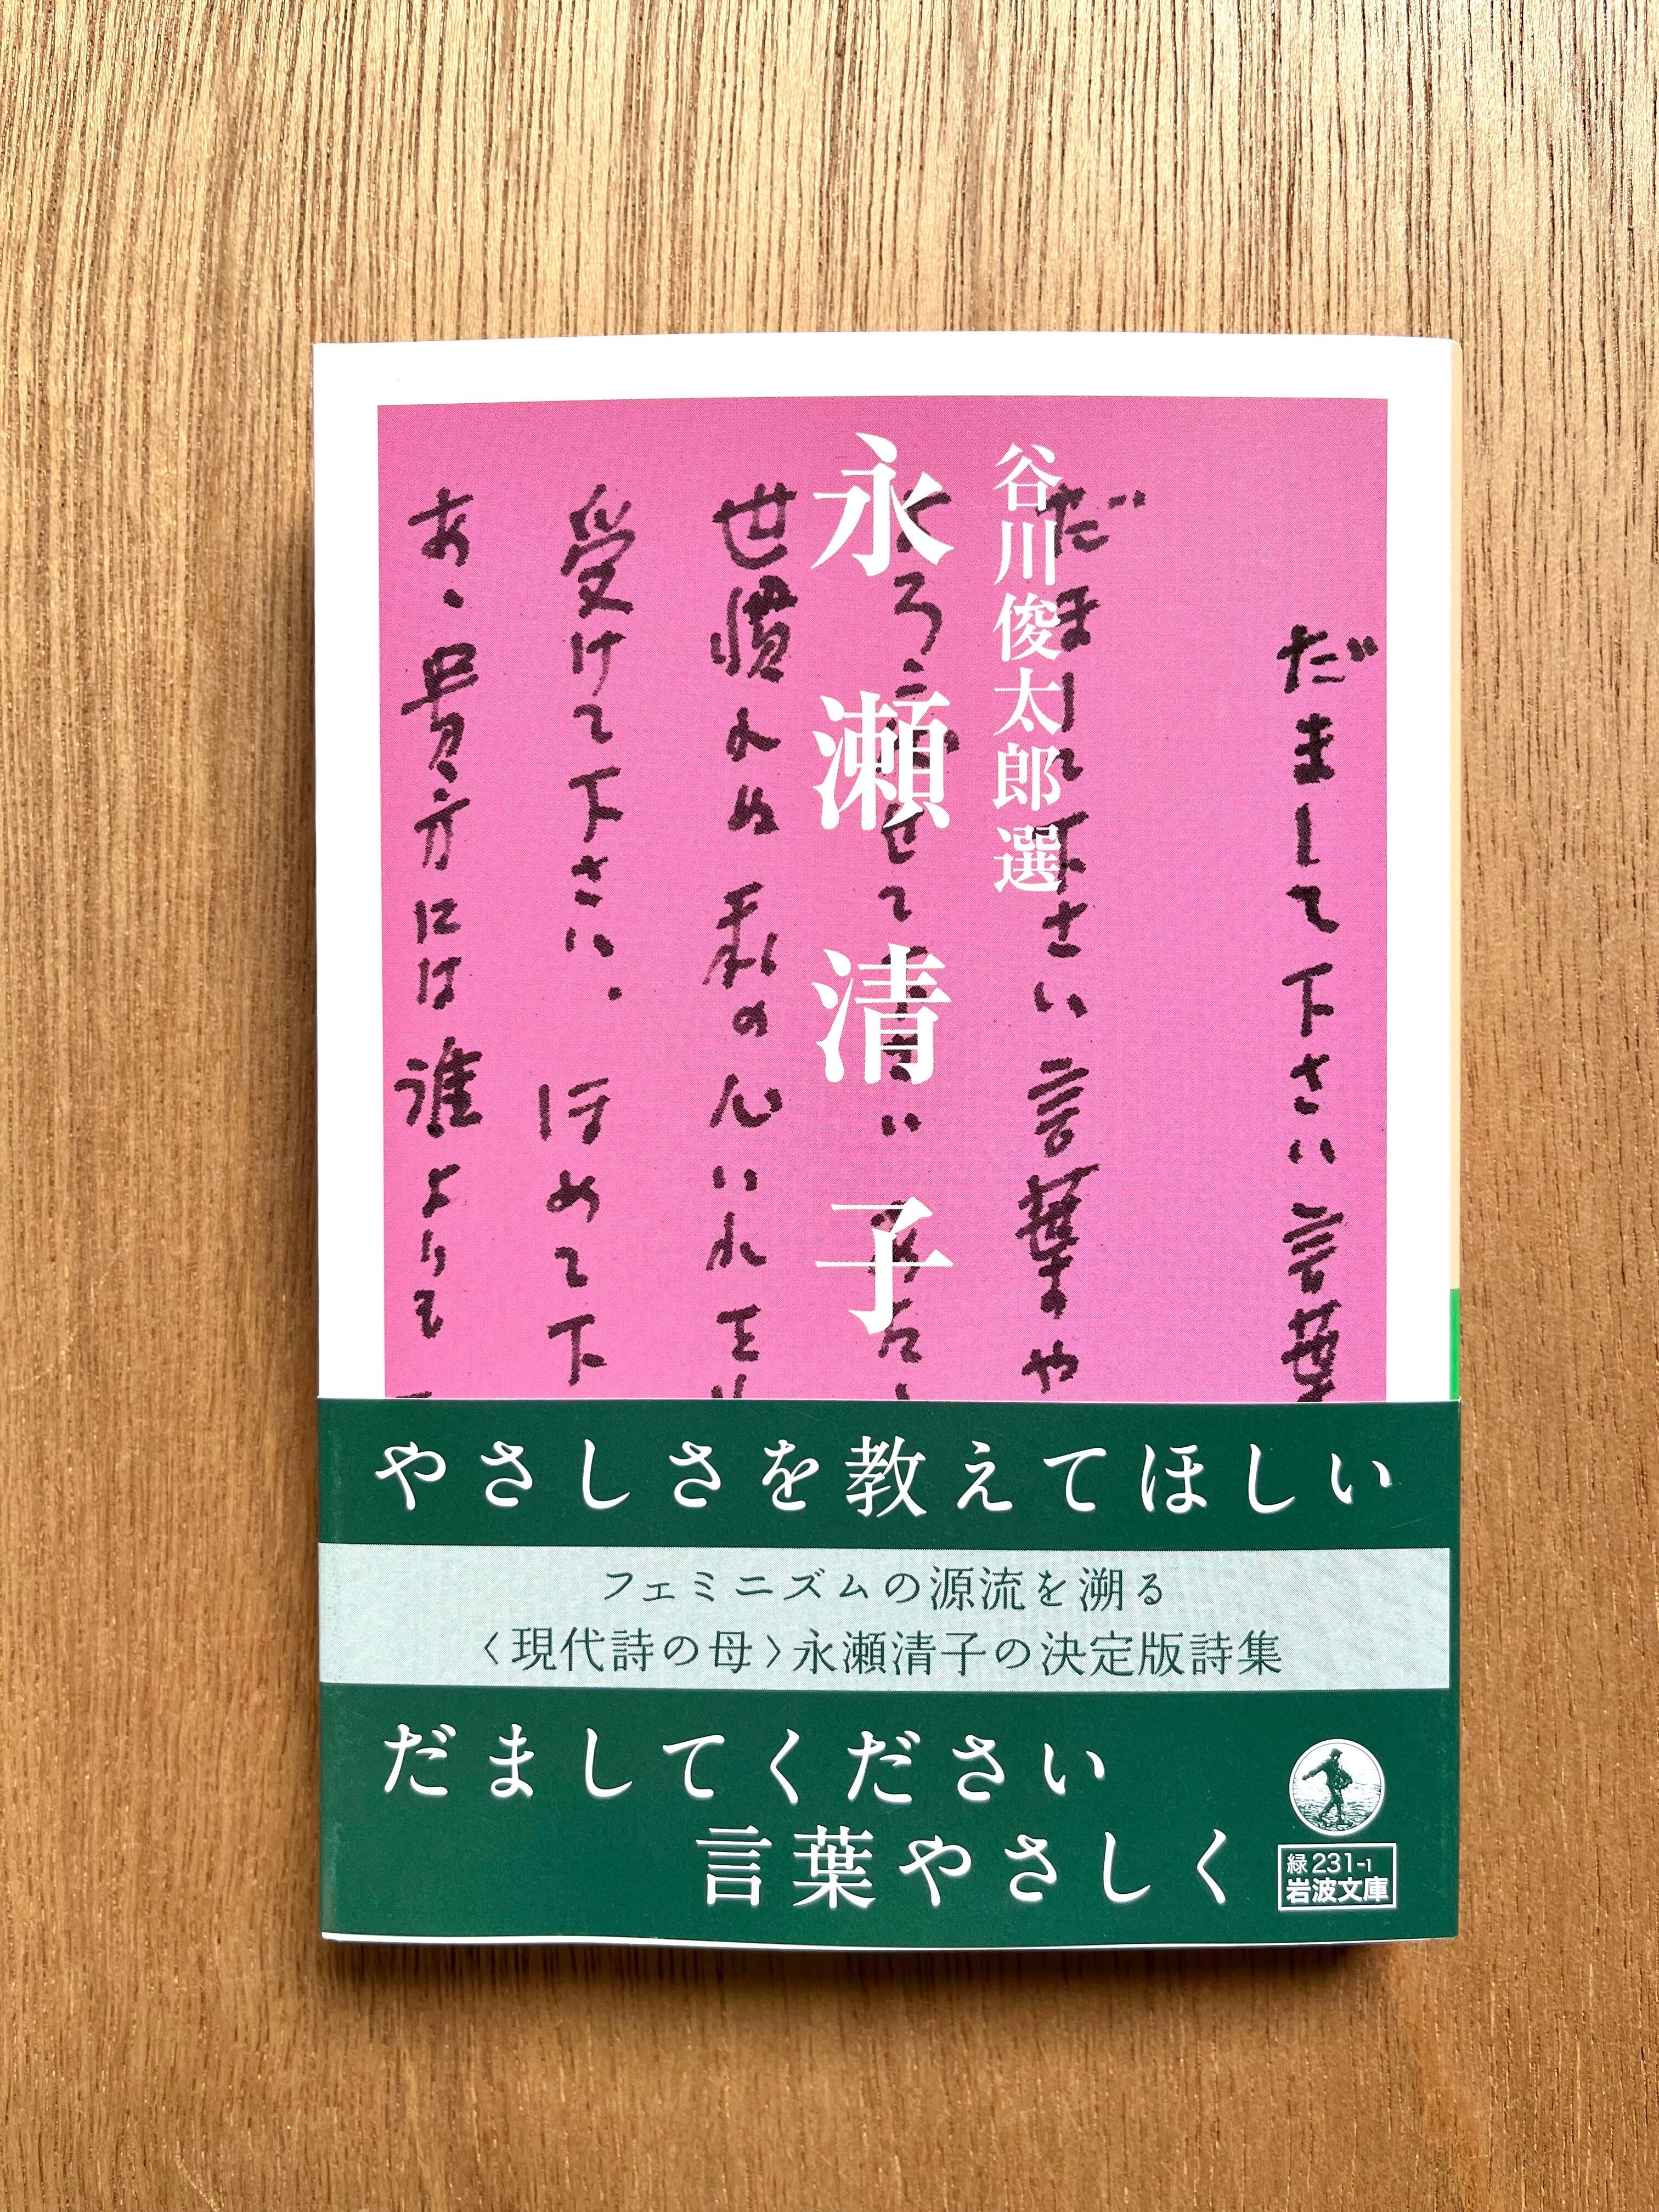 谷川俊太郎選
永瀬清子
だまして下さい言葉
だまして下さい言葉や
世慣れぬ私の心いれを
受けて下さい、ほめて下
あゝ貴方には誰よりも
やさしさを教えてほしい
フェミニズムの源流を溯る
〈現代詩の母〉永瀬清子の決定版詩集
だましてください
言葉やさしく
緑231-1
岩波文庫